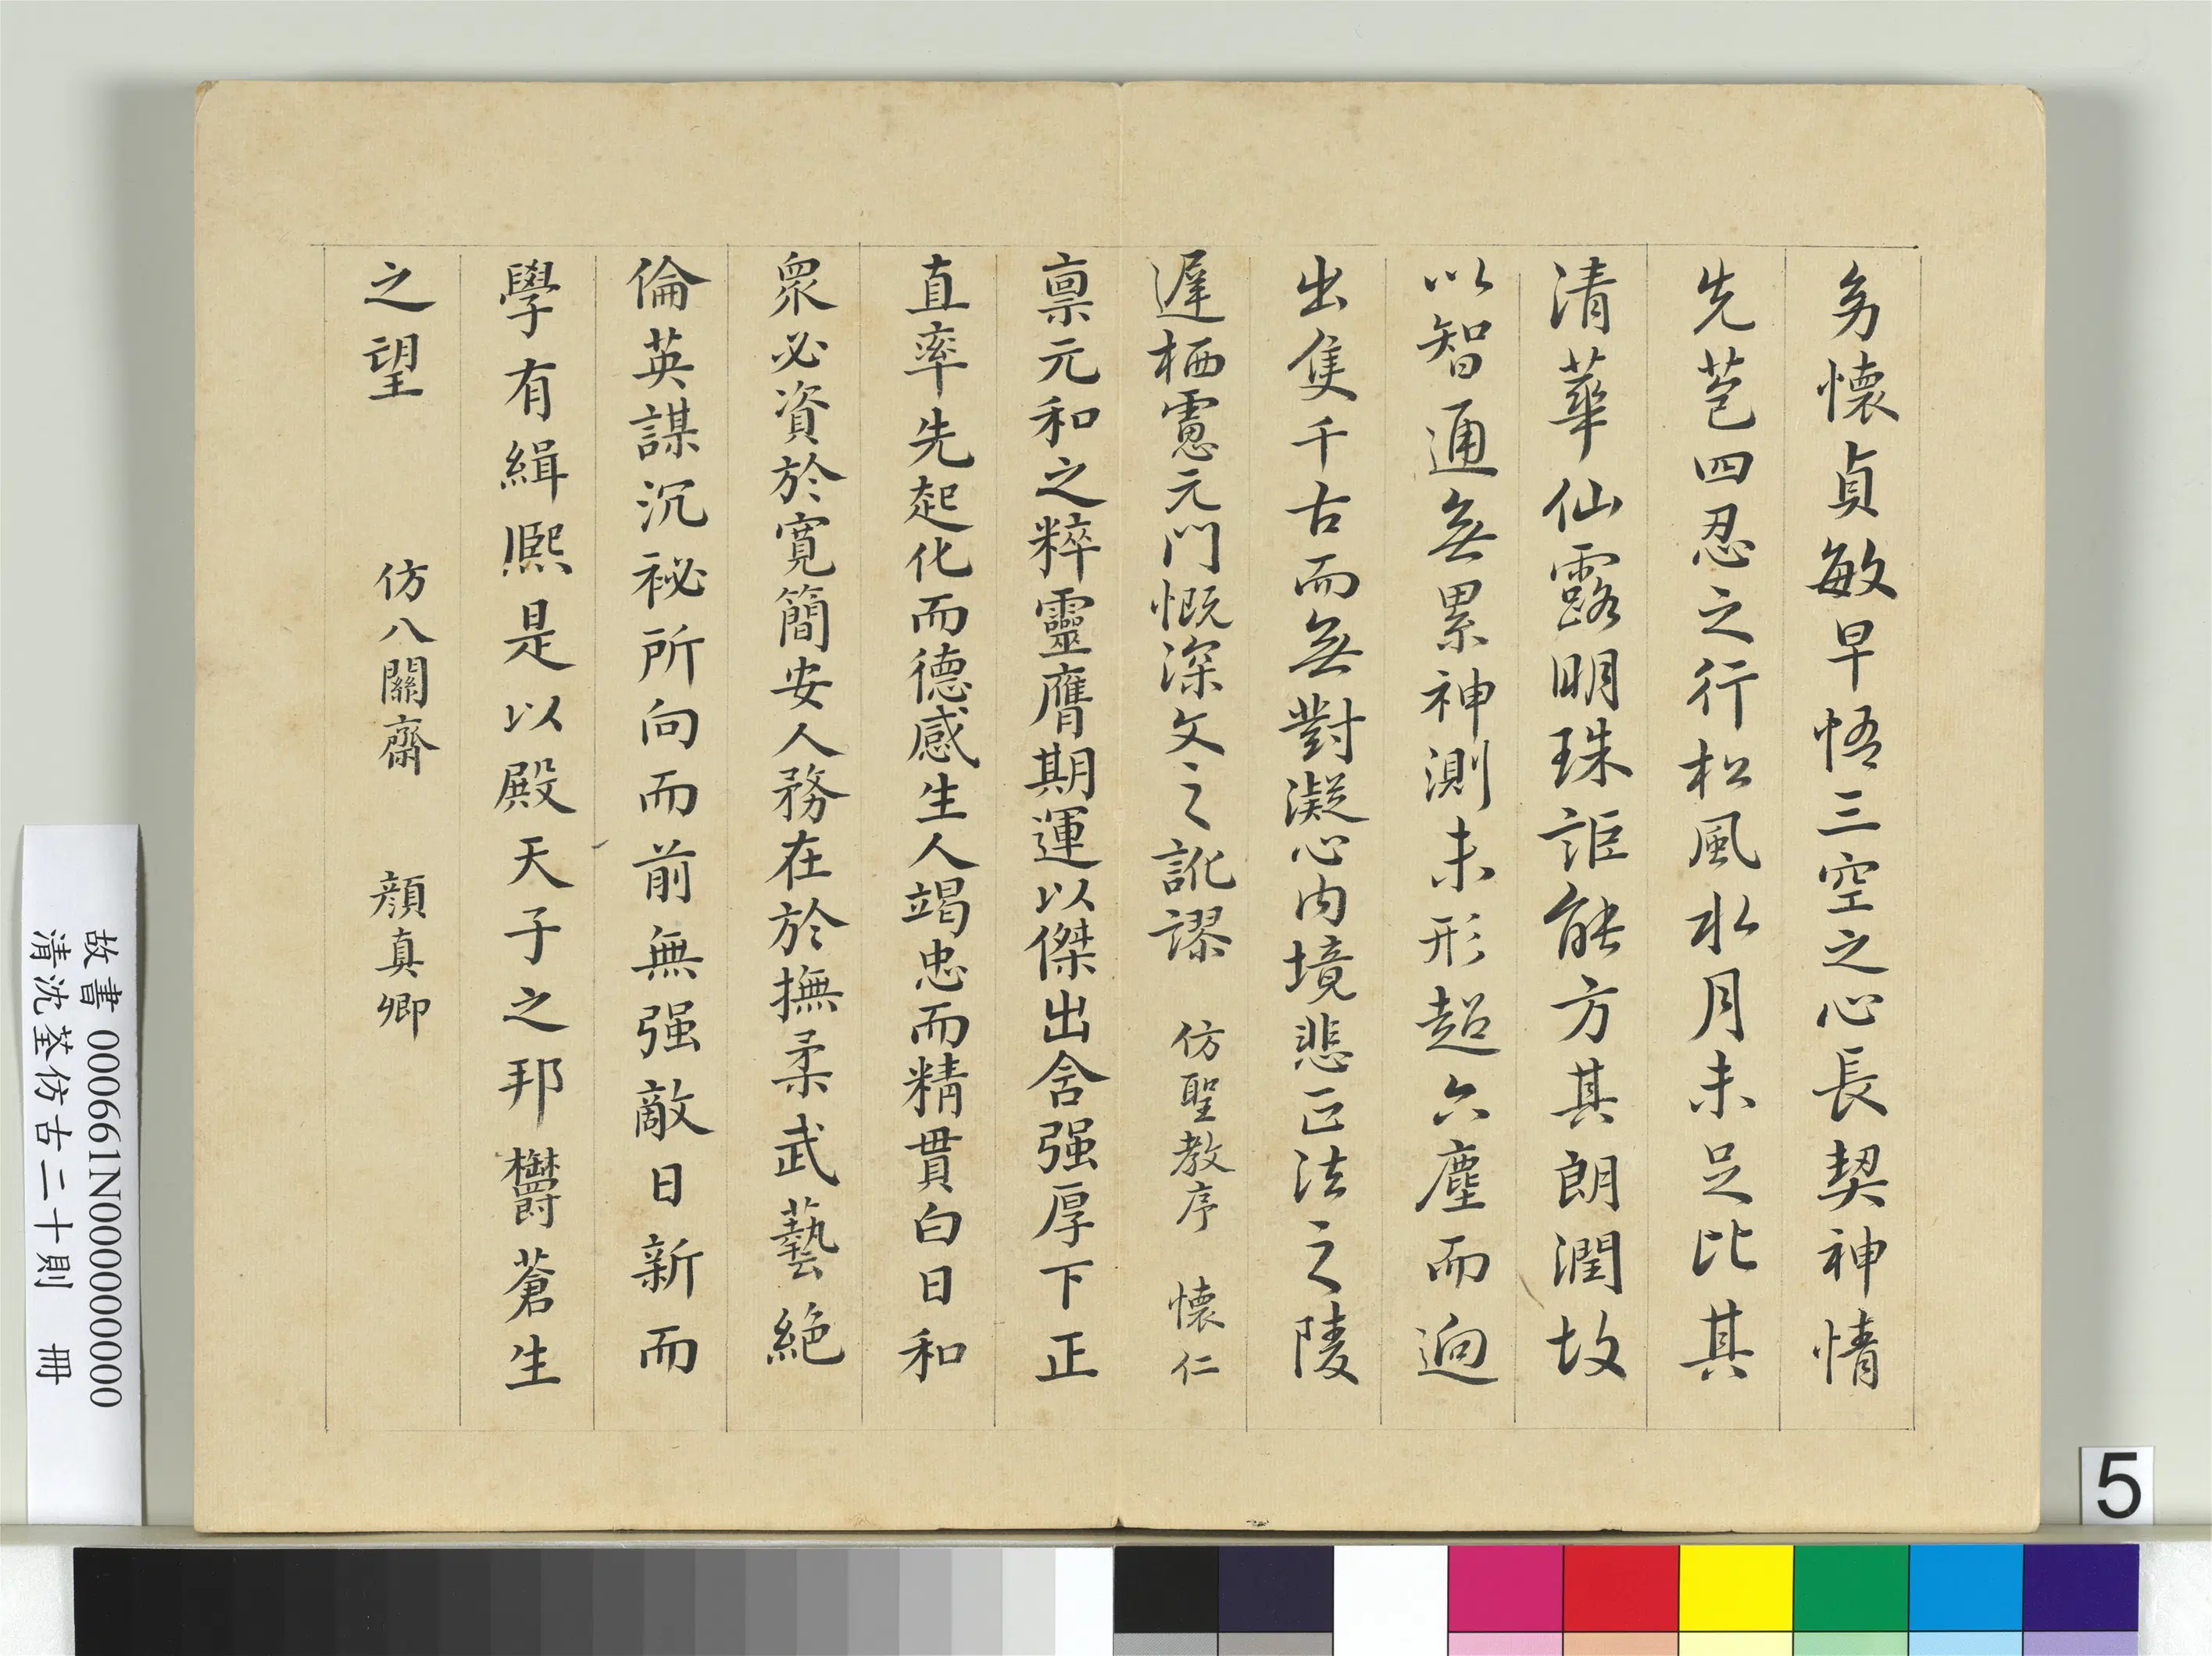 㓜懷貞敏早悟三空之心長契神情
先苞四忍之行松風水月未足比其
清華仙露明珠詎能方其朗潤故
以智通無累神測未形超六塵而迥
出隻千古而無對凝心內境悲正法之陵
遲栖慮元門慨深文之訛謬 仿聖教序 懷仁
禀元和之粹靈膺期運以傑出含强厚下正
直率先起化而德感生人竭忠而精貫白日和
衆必資於寬簡安人務在於撫柔武藝絕
倫英謀沉祕所向而前無强敵日新而
學有緝熙是以殿天子之邦欝蒼生
之望 仿八關齋 顏真卿
故書 000661N000000000
清沈荃仿古二十則 冊
5